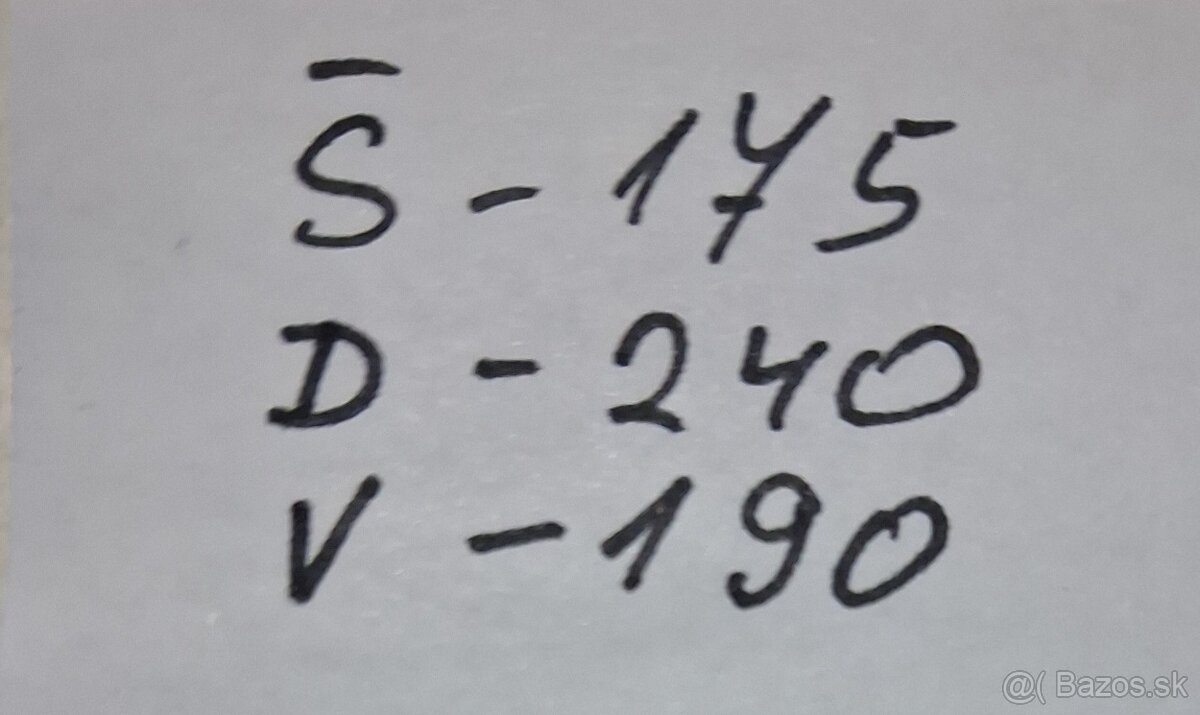 Š - 175
D - 240
V - 190
@( Bazos.sk